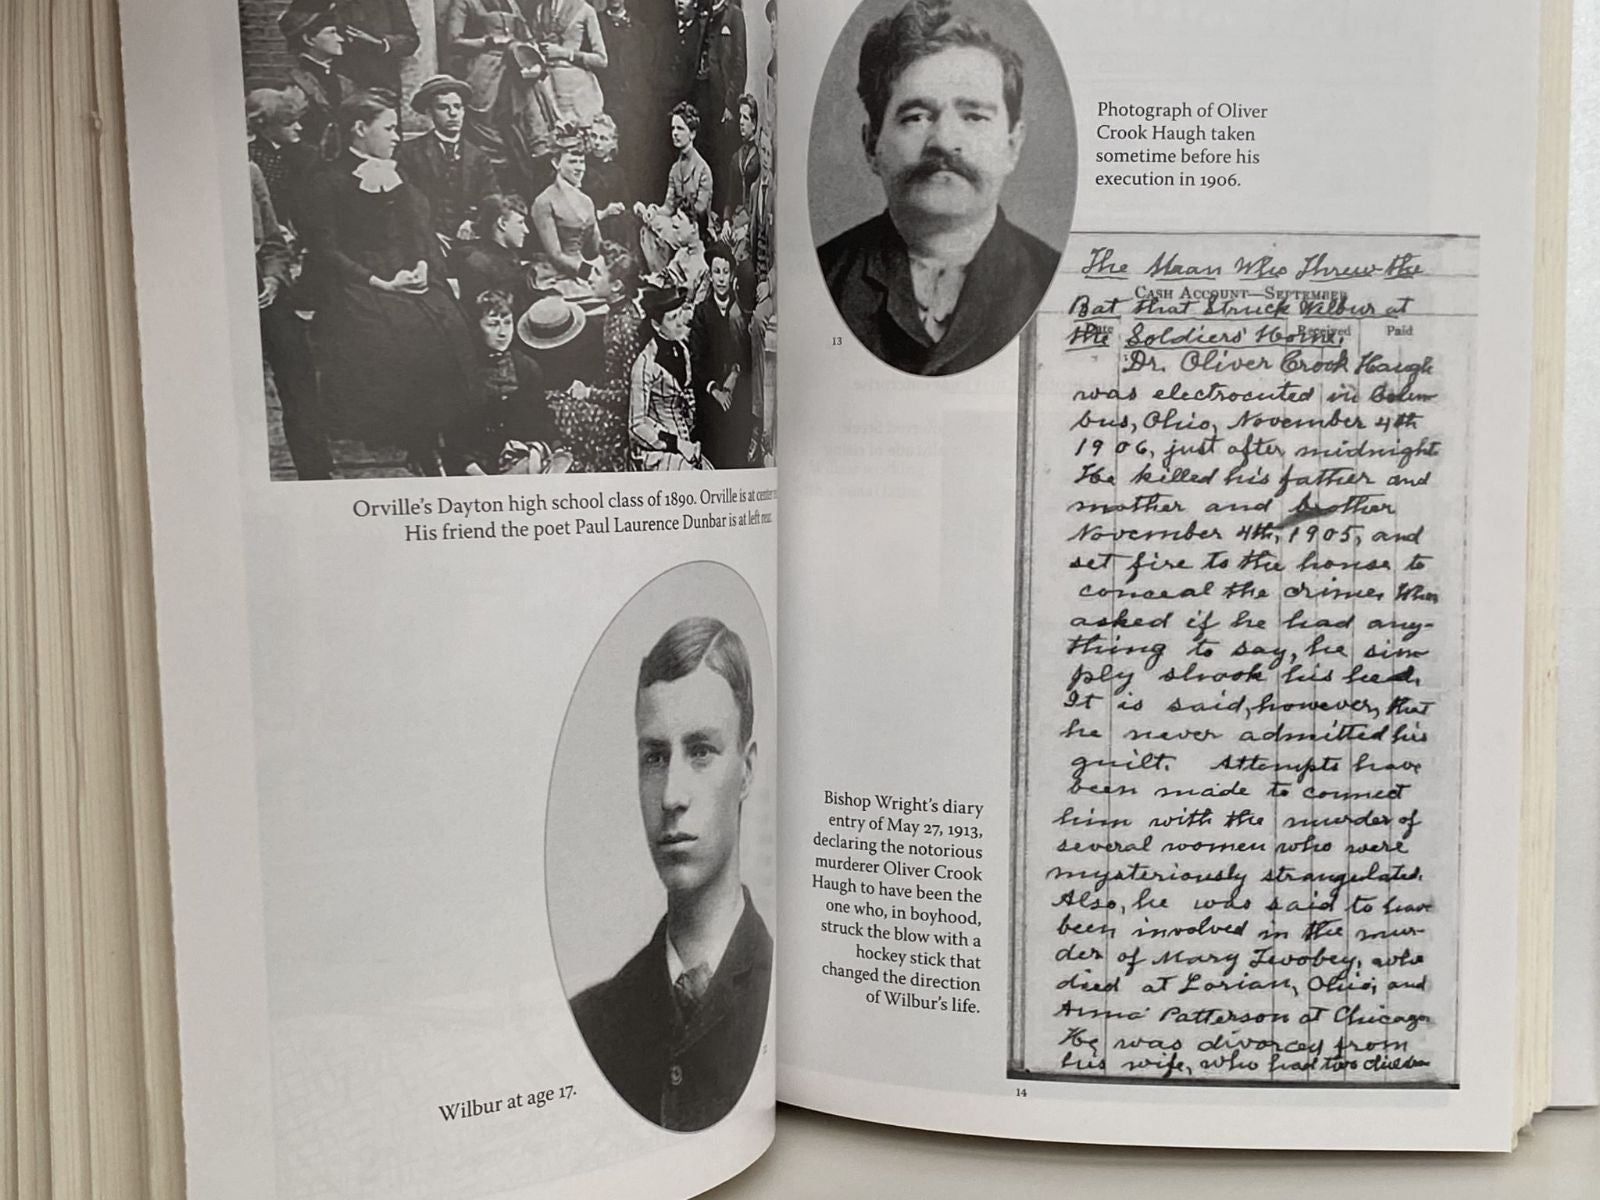 Orville's Dayton high school class of 1890. Orville is at center
His friend the poet Paul Laurence Dunbar is at left rear.
Wilbur at age 17.
13
Photograph of Oliver
Crook Haugh taken
sometime before his
execution in 1906.
Bishop Wright's diary
entry of May 27, 1913,
declaring the notorious
murderer Oliver Crook
Haugh to have been the
one who, in boyhood,
struck the blow with a
hockey stick that
changed the direction
of Wilbur's life.
The Man Who Threw the
Cash Account—September
Bat that Struck Wilbur at
Date Received Paid
the Soldiers' Home.
Dr. Oliver Crook Haugh
was electrocuted in Colum-
bus, Ohio, November 4th
1906, just after midnight.
He killed his father and
mother and brother
November 4th, 1905, and
set fire to the house to
conceal the crime. When
asked if he had any-
thing to say, he sim-
ply shook his head.
It is said, however, that
he never admitted his
guilt. Attempts have
been made to connect
him with the murder of
several women who were
mysteriously strangulated.
Also, he was said to have
been involved in the mur-
der of Mary Twobey, who
died at Lorian, Ohio, and
Anna Patterson at Chicago
He was divorced from
his wife, who had two children
14